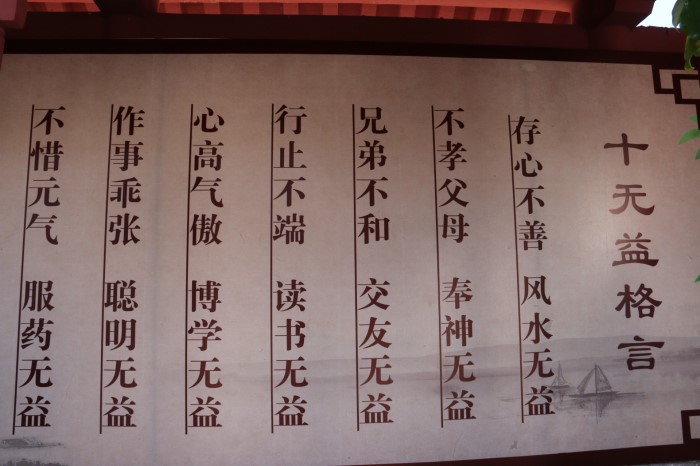 十无益格言
存心不善 风水无益
不孝父母 奉神无益
兄弟不和 交友无益
行止不端 读书无益
心高气傲 博学无益
作事乖张 聪明无益
不惜元气 服药无益